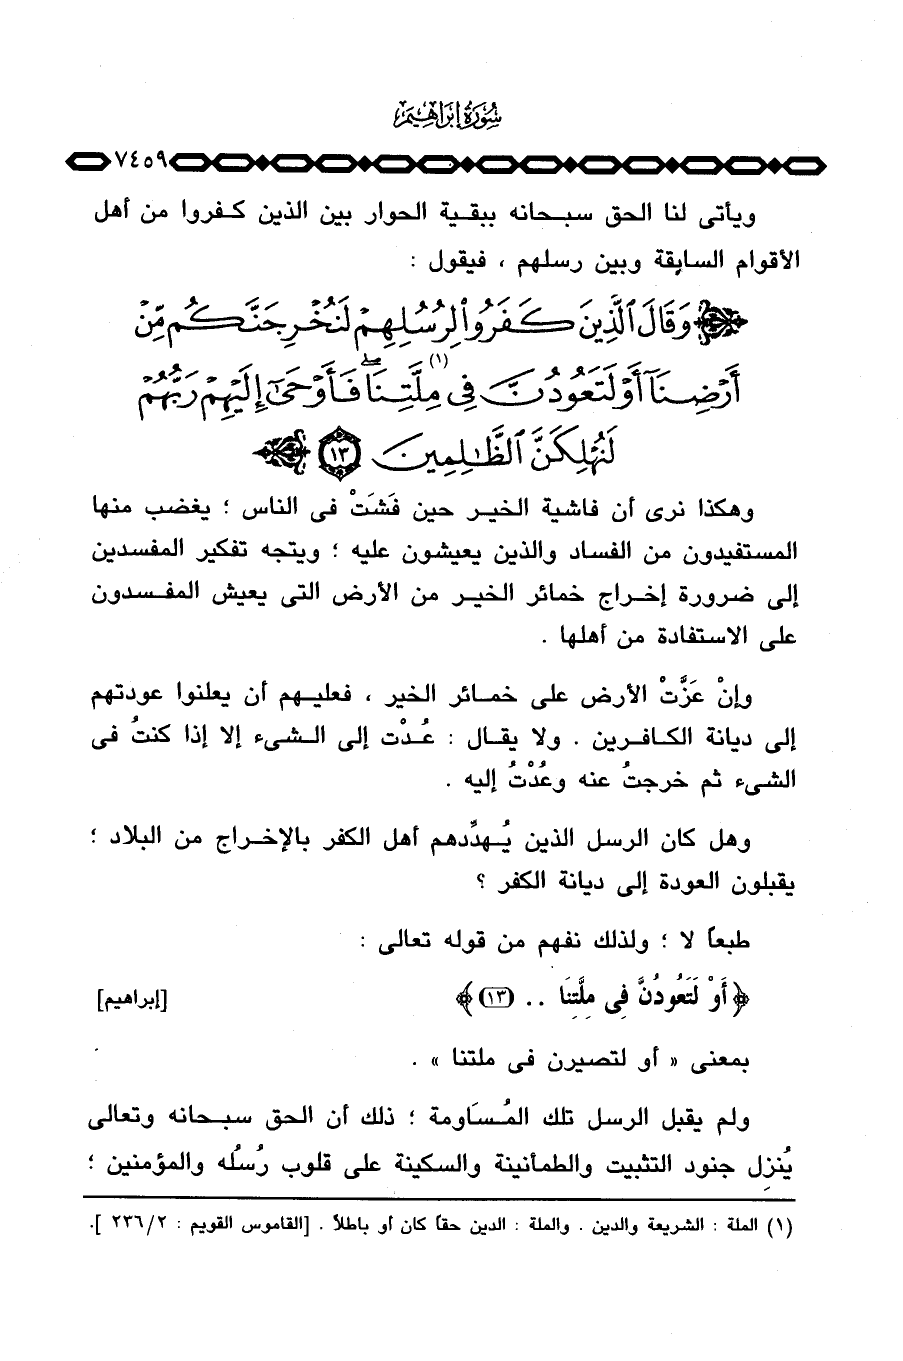 سُورَةُ إبْرَاهِيمَ
٧٤٥٩
ويأتى لنا الحق سبحانه ببقية الحوار بين الذين كفروا من أهل
الأقوام السابقة وبين رسلهم ، فيقول :
وَقَالَ ٱلَّذِينَ كَفَرُوا۟ لِرُسُلِهِمْ لَنُخْرِجَنَّكُم مِّنْ
أَرْضِنَآ أَوْ لَتَعُودُنَّ فِى مِلَّتِنَا ۖ (١) فَأَوْحَىٰٓ إِلَيْهِمْ رَبُّهُمْ
لَنُهْلِكَنَّ ٱلظَّـٰلِمِينَ ١٣
وهكذا نرى أن فاشية الخير حين فَشَتْ فى الناس ؛ يغضب منها
المستفيدون من الفساد والذين يعيشون عليه ؛ ويتجه تفكير المفسدين
إلى ضرورة إخراج خمائر الخير من الأرض التى يعيش المفسدون
على الاستفادة من أهلها .
وإنْ عَزَّتْ الأرض على خمائر الخير ، فعليهم أن يعلنوا عودتهم
إلى ديانة الكافرين . ولا يقال : عُدْت إلى الشىء إلا إذا كنتُ فى
الشىء ثم خرجتُ عنه وعُدْتُ إليه .
وهل كان الرسل الذين يُهدِّدهم أهل الكفر بالإخراج من البلاد ؛
يقبلون العودة إلى ديانة الكفر ؟
طبعاً لا ؛ ولذلك نفهم من قوله تعالى :
﴿ أَوْ لَتَعُودُنَّ فِى مِلَّتِنَا .. (١٣) ﴾ [إبراهيم]
بمعنى « أو لتصيرن فى ملتنا » .
ولم يقبل الرسل تلك المُسَاومة ؛ ذلك أن الحق سبحانه وتعالى
يُنزِل جنود التثبيت والطمأنينة والسكينة على قلوب رُسُله والمؤمنين ؛
(١) الملة : الشريعة والدين . والملة : الدين حقاً كان أو باطلاً . [القاموس القويم : ٢٣٦/٢ ].